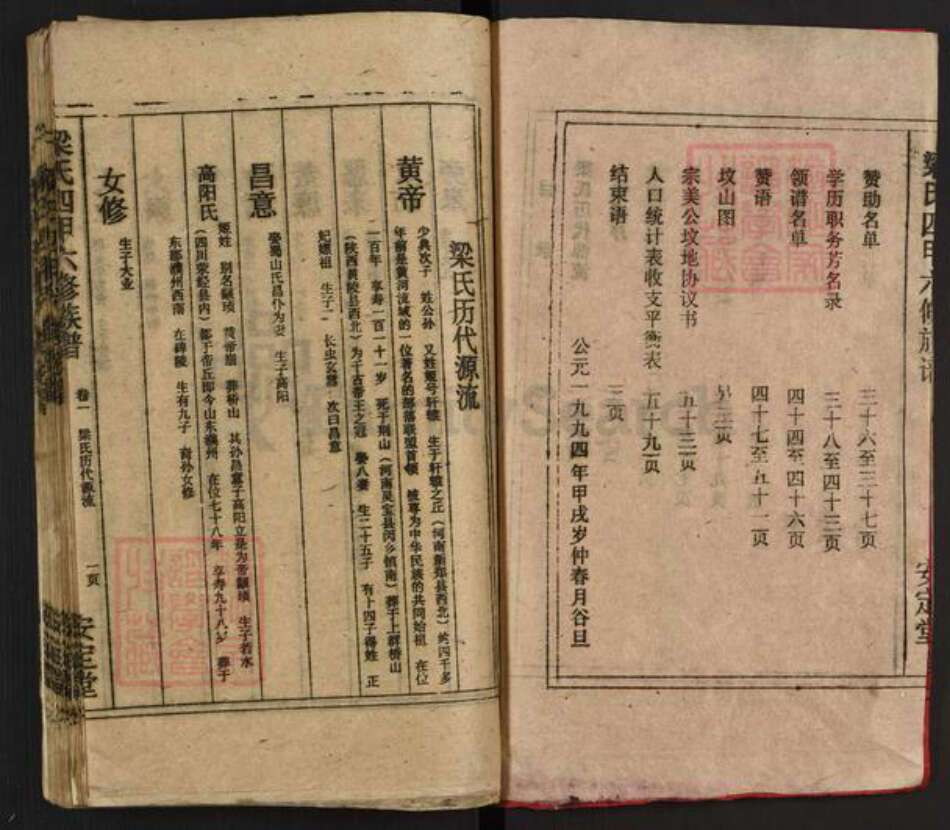 赞助名单 三十六至三十七页
学历职务芳名录 三十八至四十三页
领谱名单 四十四至四十六页
赞语 四十七至五十二页
坟山图
宗美公坟地协议书 五十三页
人口统计表收支平衡表 五十九页
结束语
公元一九九四年甲戌岁仲春月谷旦
安定堂
梁氏历代源流
黄帝
少典次子 姓公孙 又姓姬号轩辕 生于轩辕之丘（河南新郑县西北）约四千多
年前是黄河流域的一位著名的部落联盟首领 被尊为中华民族的共同始祖 在位
一百年 享寿一百一十一岁 死于荆山（河南灵宝县阌乡镇南）葬于上群桥山
（陕西黄陵县西北）为千古帝王之冠 娶八妻 生二十五子 有十四子得姓 正
妃嫘祖 生子二 长曰玄嚣 次曰昌意
昌意
娶蜀山氏昌仆为妻 生子高阳
高阳氏
姬姓 别名颛顼 黄帝崩 葬桥山 其孙昌意子高阳立是为帝颛顼 生于若水
（四川荥经县内）都于帝丘即今山东濮州 在位七十八年 享寿九十八岁 葬于
东郡濮州西南 在 生有九子 裔孙女修
女修
生子大业
梁氏四甲六修族谱
卷一 梁氏历代源流
一页
安定堂